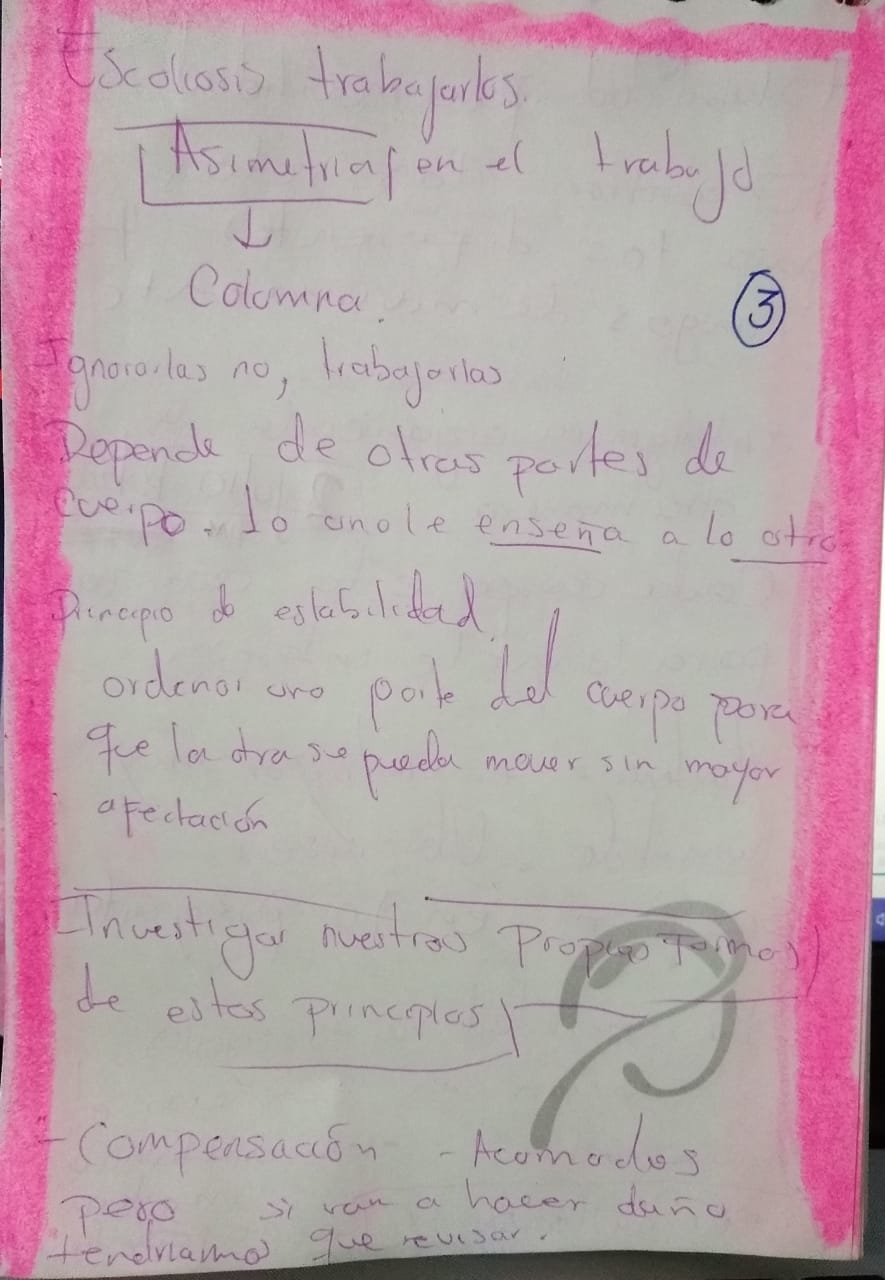 Escoliosis trabajarlas.
Asimetrias en el trabajo
↓
Columna.
3
Ignorarlas no, trabajarlas
Depende de otras partes de
cuerpo. lo uno le enseña a lo otro
Principio de estabilidad.
ordenar una parte del cuerpo para
que la otra se pueda mover sin mayor
afectación
Investigar nuestras Propias Formas
de estos principios
- Compensación - Acomodos
pero si van a hacer daño
tendriamos que revisar.